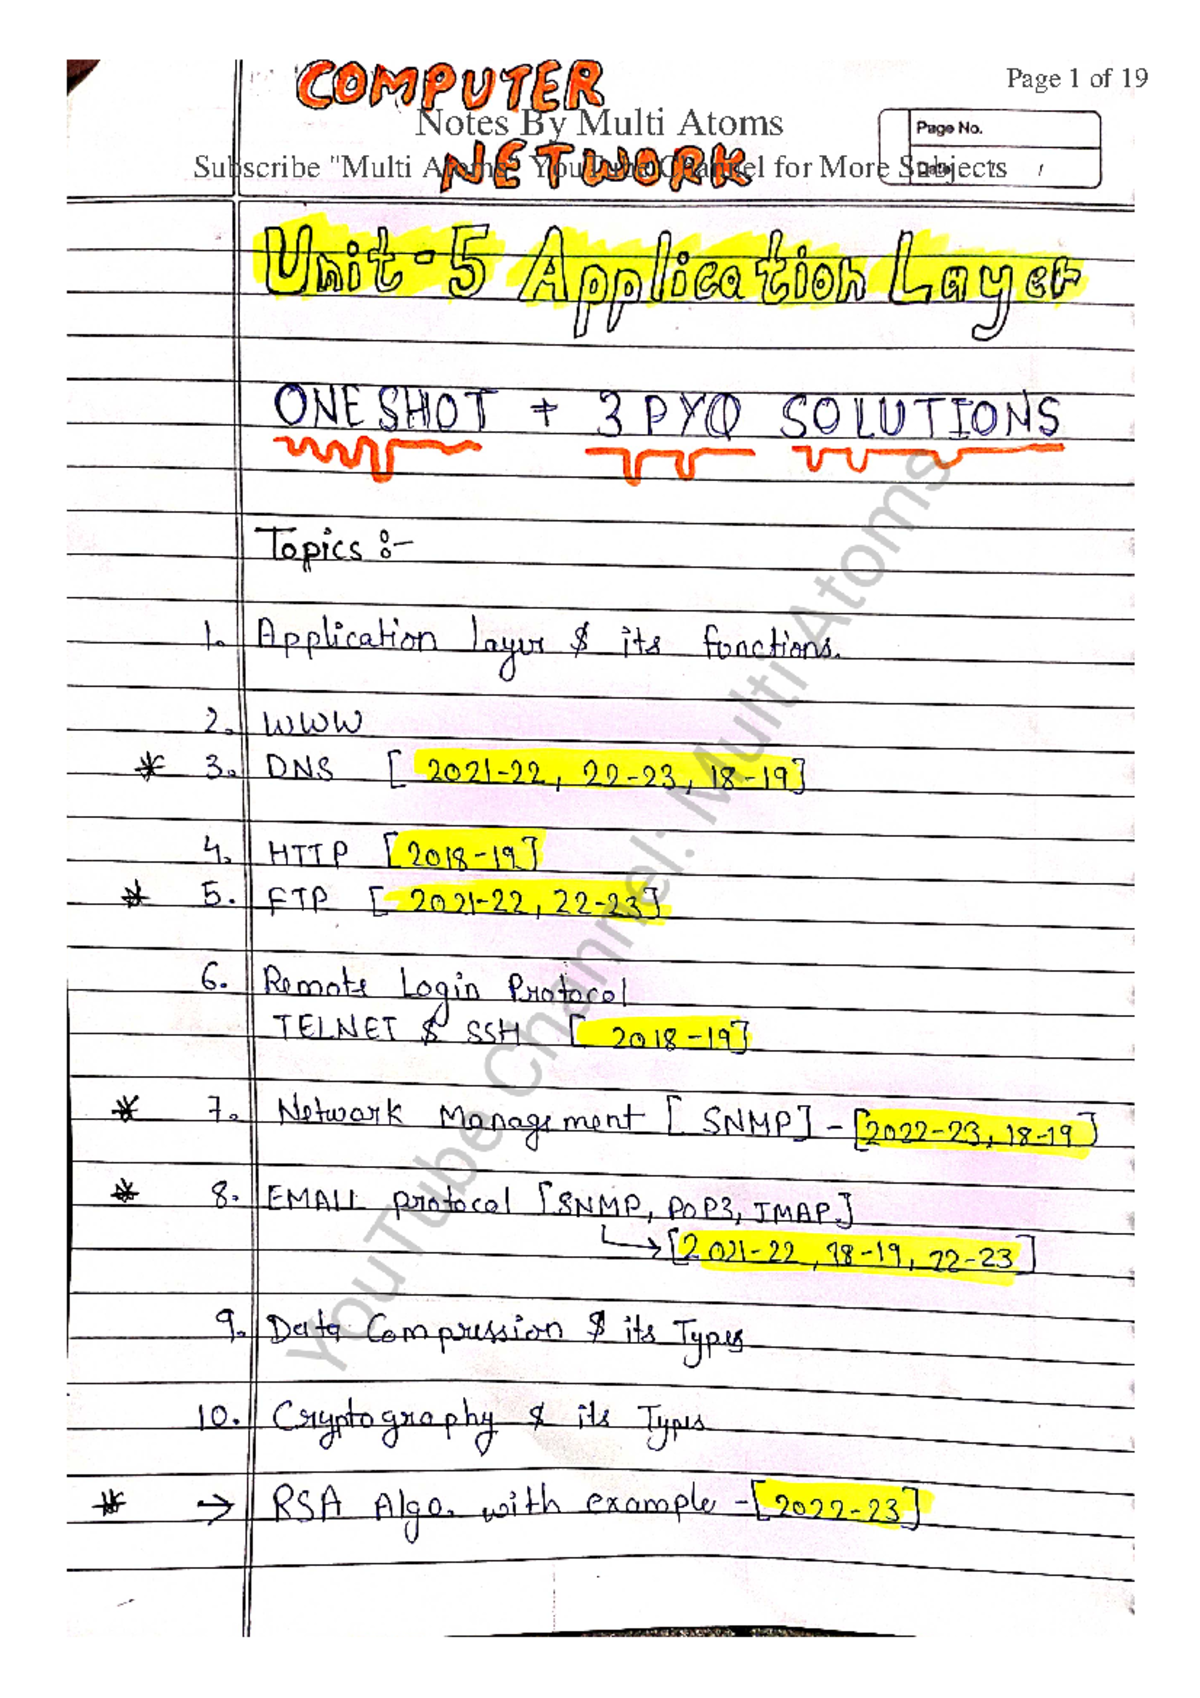 COMPUTER
Page 1 of 19
Notes By Multi Atoms
Page No.
NETWORK
Subscribe "Multi Atoms" YouTube Channel for More Subjects
Date
Unit-5 Application Layer
ONE SHOT + 3 PYQ SOLUTIONS
Topics :-
1. Application layer & its functions.
2. WWW
* 3. DNS [ 2021-22, 22-23, 18-19]
4. HTTP [2018-19]
* 5. FTP [ 2021-22, 22-23]
6. Remote Login Protocol
TELNET & SSH [ 2018-19]
* 7. Network Management [ SNMP] - [2022-23, 18-19]
* 8. EMAIL protocol [SNMP, POP3, IMAP.]
↳ [2021-22, 18-19, 22-23]
9. Data Compression & its Types
10. Cryptography & its Types
* → RSA Algo. with example -[2022-23]
YouTube Channel: Multi Atoms